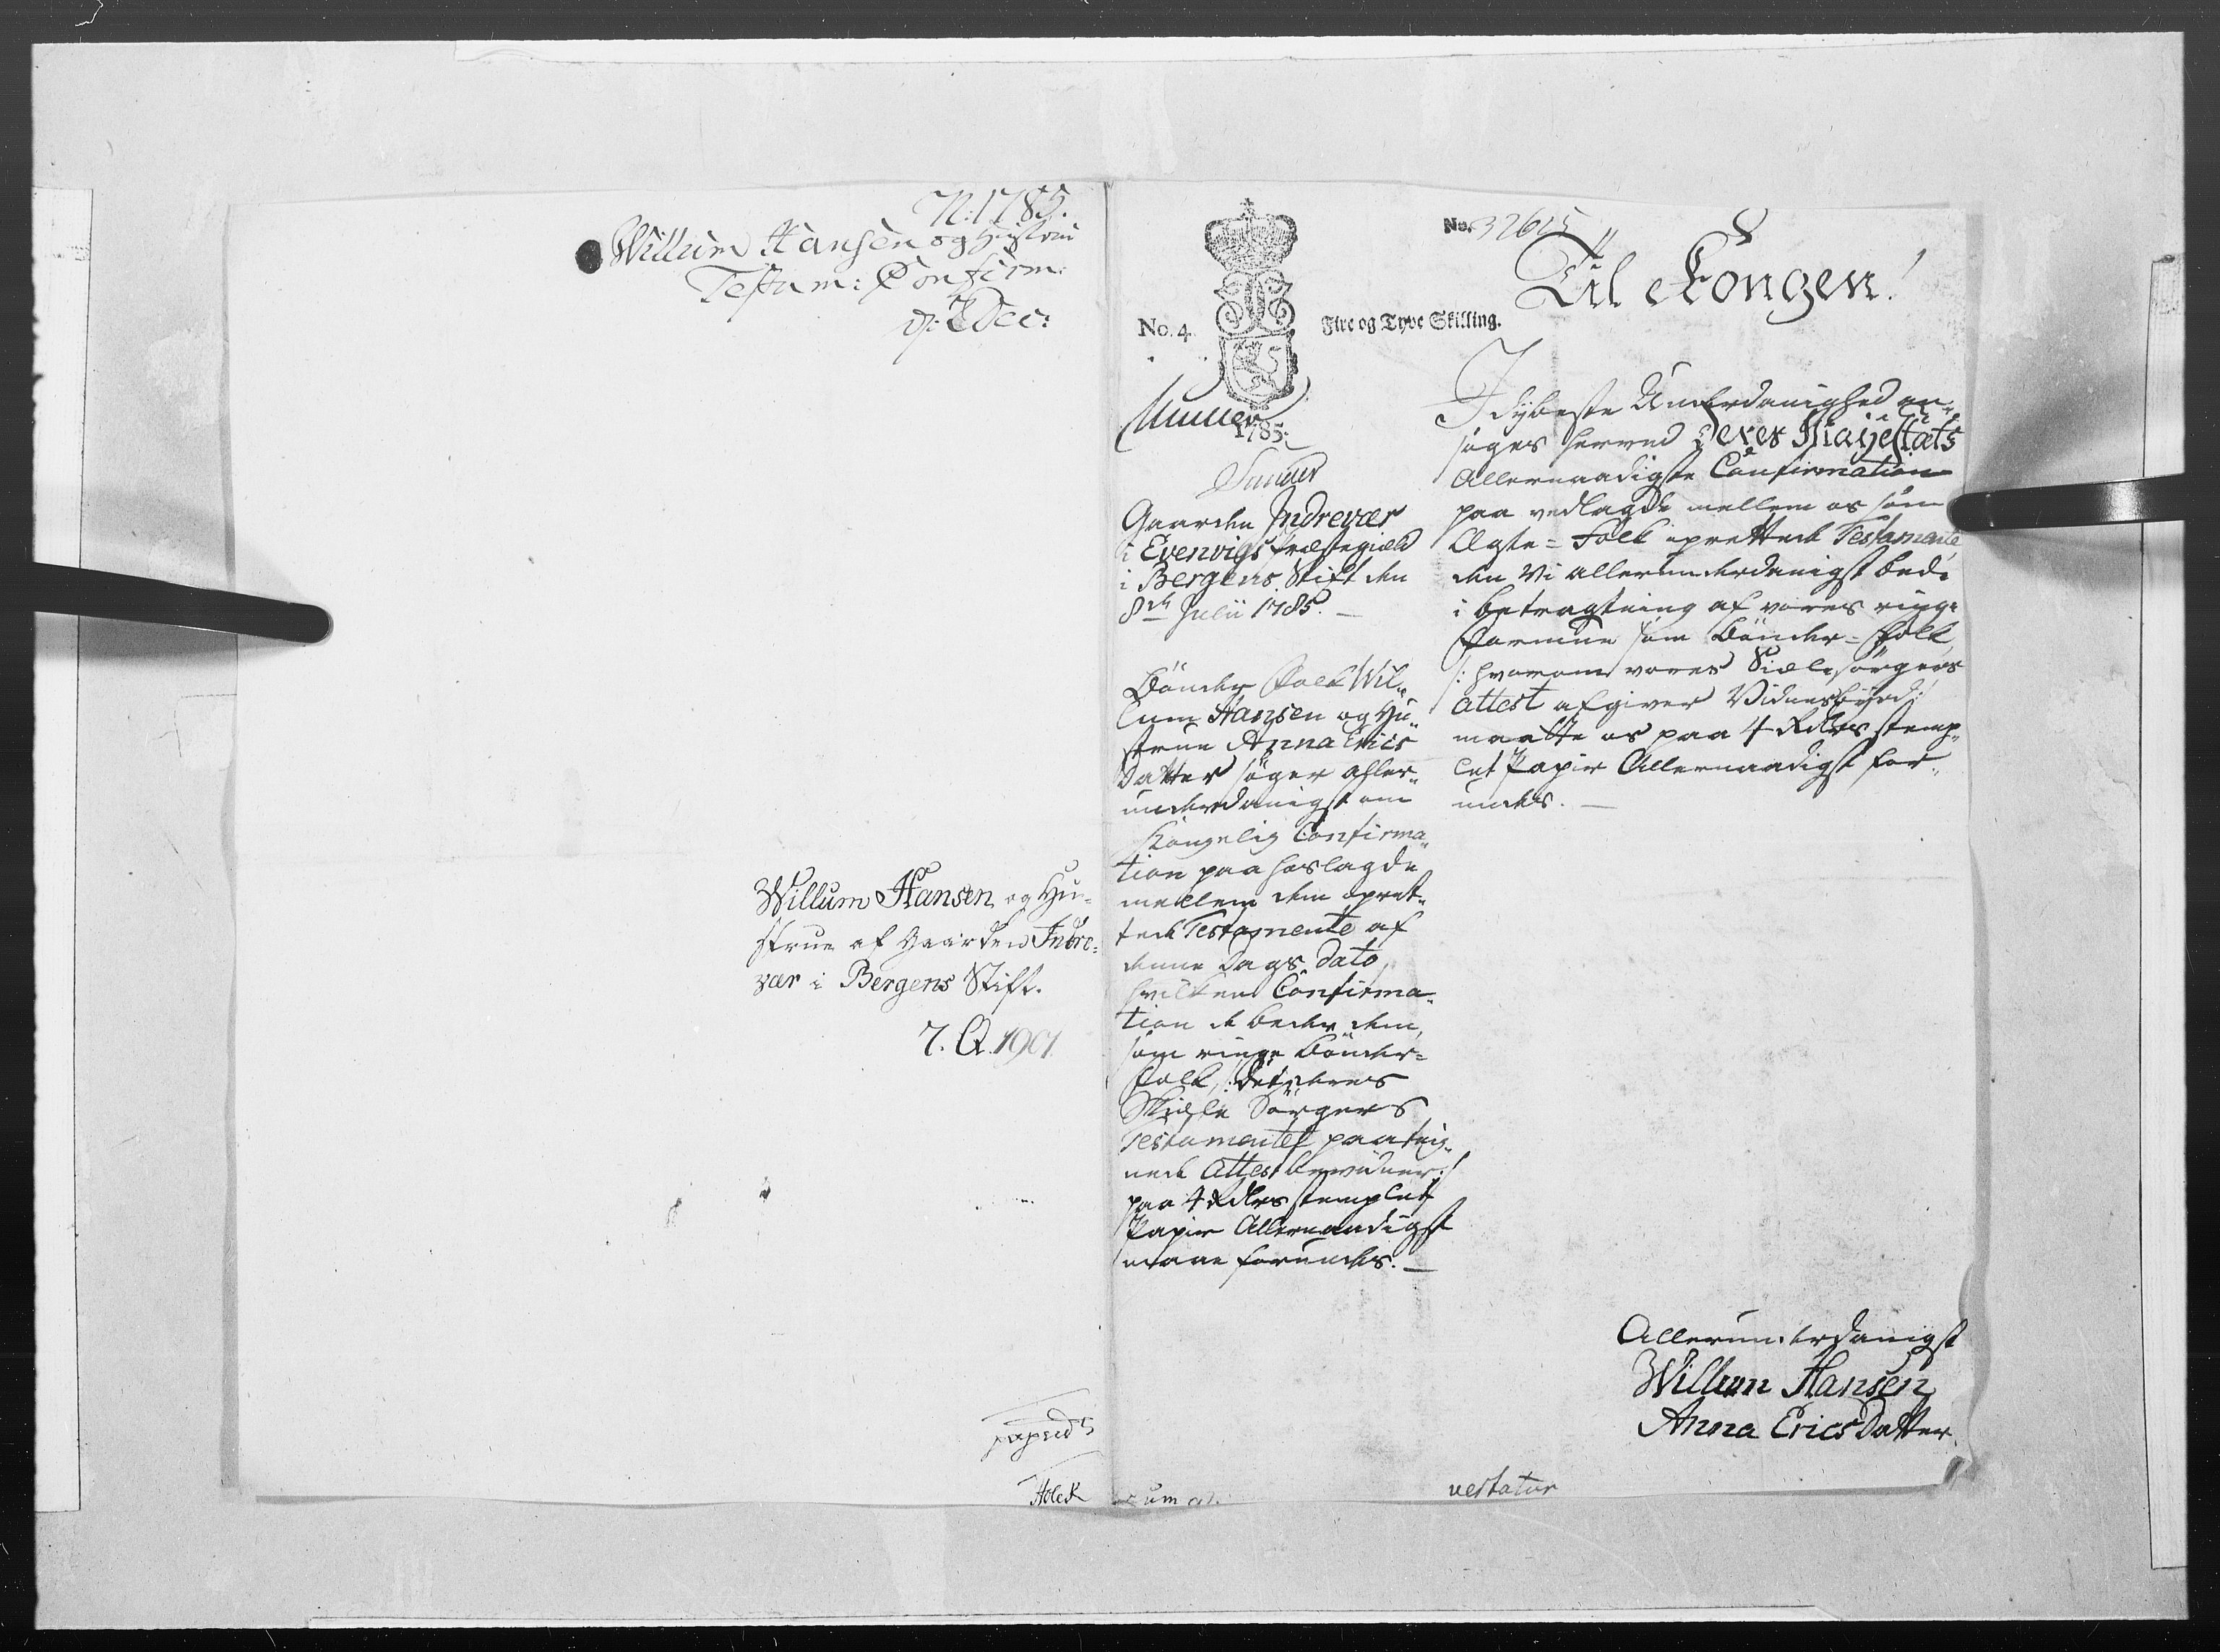 N: 1785.
Willum Hansen og Hustrue
Testam: Confirm:
d: 2 Dec:
Willum Hansen og Hu-
strue af Gaarden Indre-
vær i Bergens Stift.
7. Q. 1901
Holck
No. 32615
Til Kongen!
No. 4
Fire og Tyve Skilling.
1785.
Gaarden Indrevær
i Evenvigs Præstegield
i Bergens Stift den
8de Julii 1785.
Bönder Folk Wil-
lum Hansen og Hu-
strue Anna Erics
Datter söger aller-
underdanigst om
Kongelig Confirma-
tion paa hoslagde
mellem dem opret-
tede Testamente af
denne Dags Dato,
hvilken Confirma-
tion de beder dem,
som ringe Bönder-
Folk, /: det deres
Siæle Sörgers
Testamentet paateig-
nede Attest bevidner :/
paa 4 Rdlrs stemplet
Papir Allernaadigst
maae forundes.
I dybeste Underdanighed an-
söges herved Deres Majestæts
Allernaadigste Confirmation
paa vedlagde mellem os som
Ægte-Folk oprettede Testamente
den Vi allerunderdanigst bede
i betragtning af vores ringe
Formue som Bönder-Folk,
/: hvorom vores Siælesörgers
Attest afgiver Vidnesbyrd :/
maatte os paa 4 Rdlrs stemp-
let Papir Allernaadigst for-
undes.
Allerunderdanigst
Willum Hansen
Anna Erics Datter